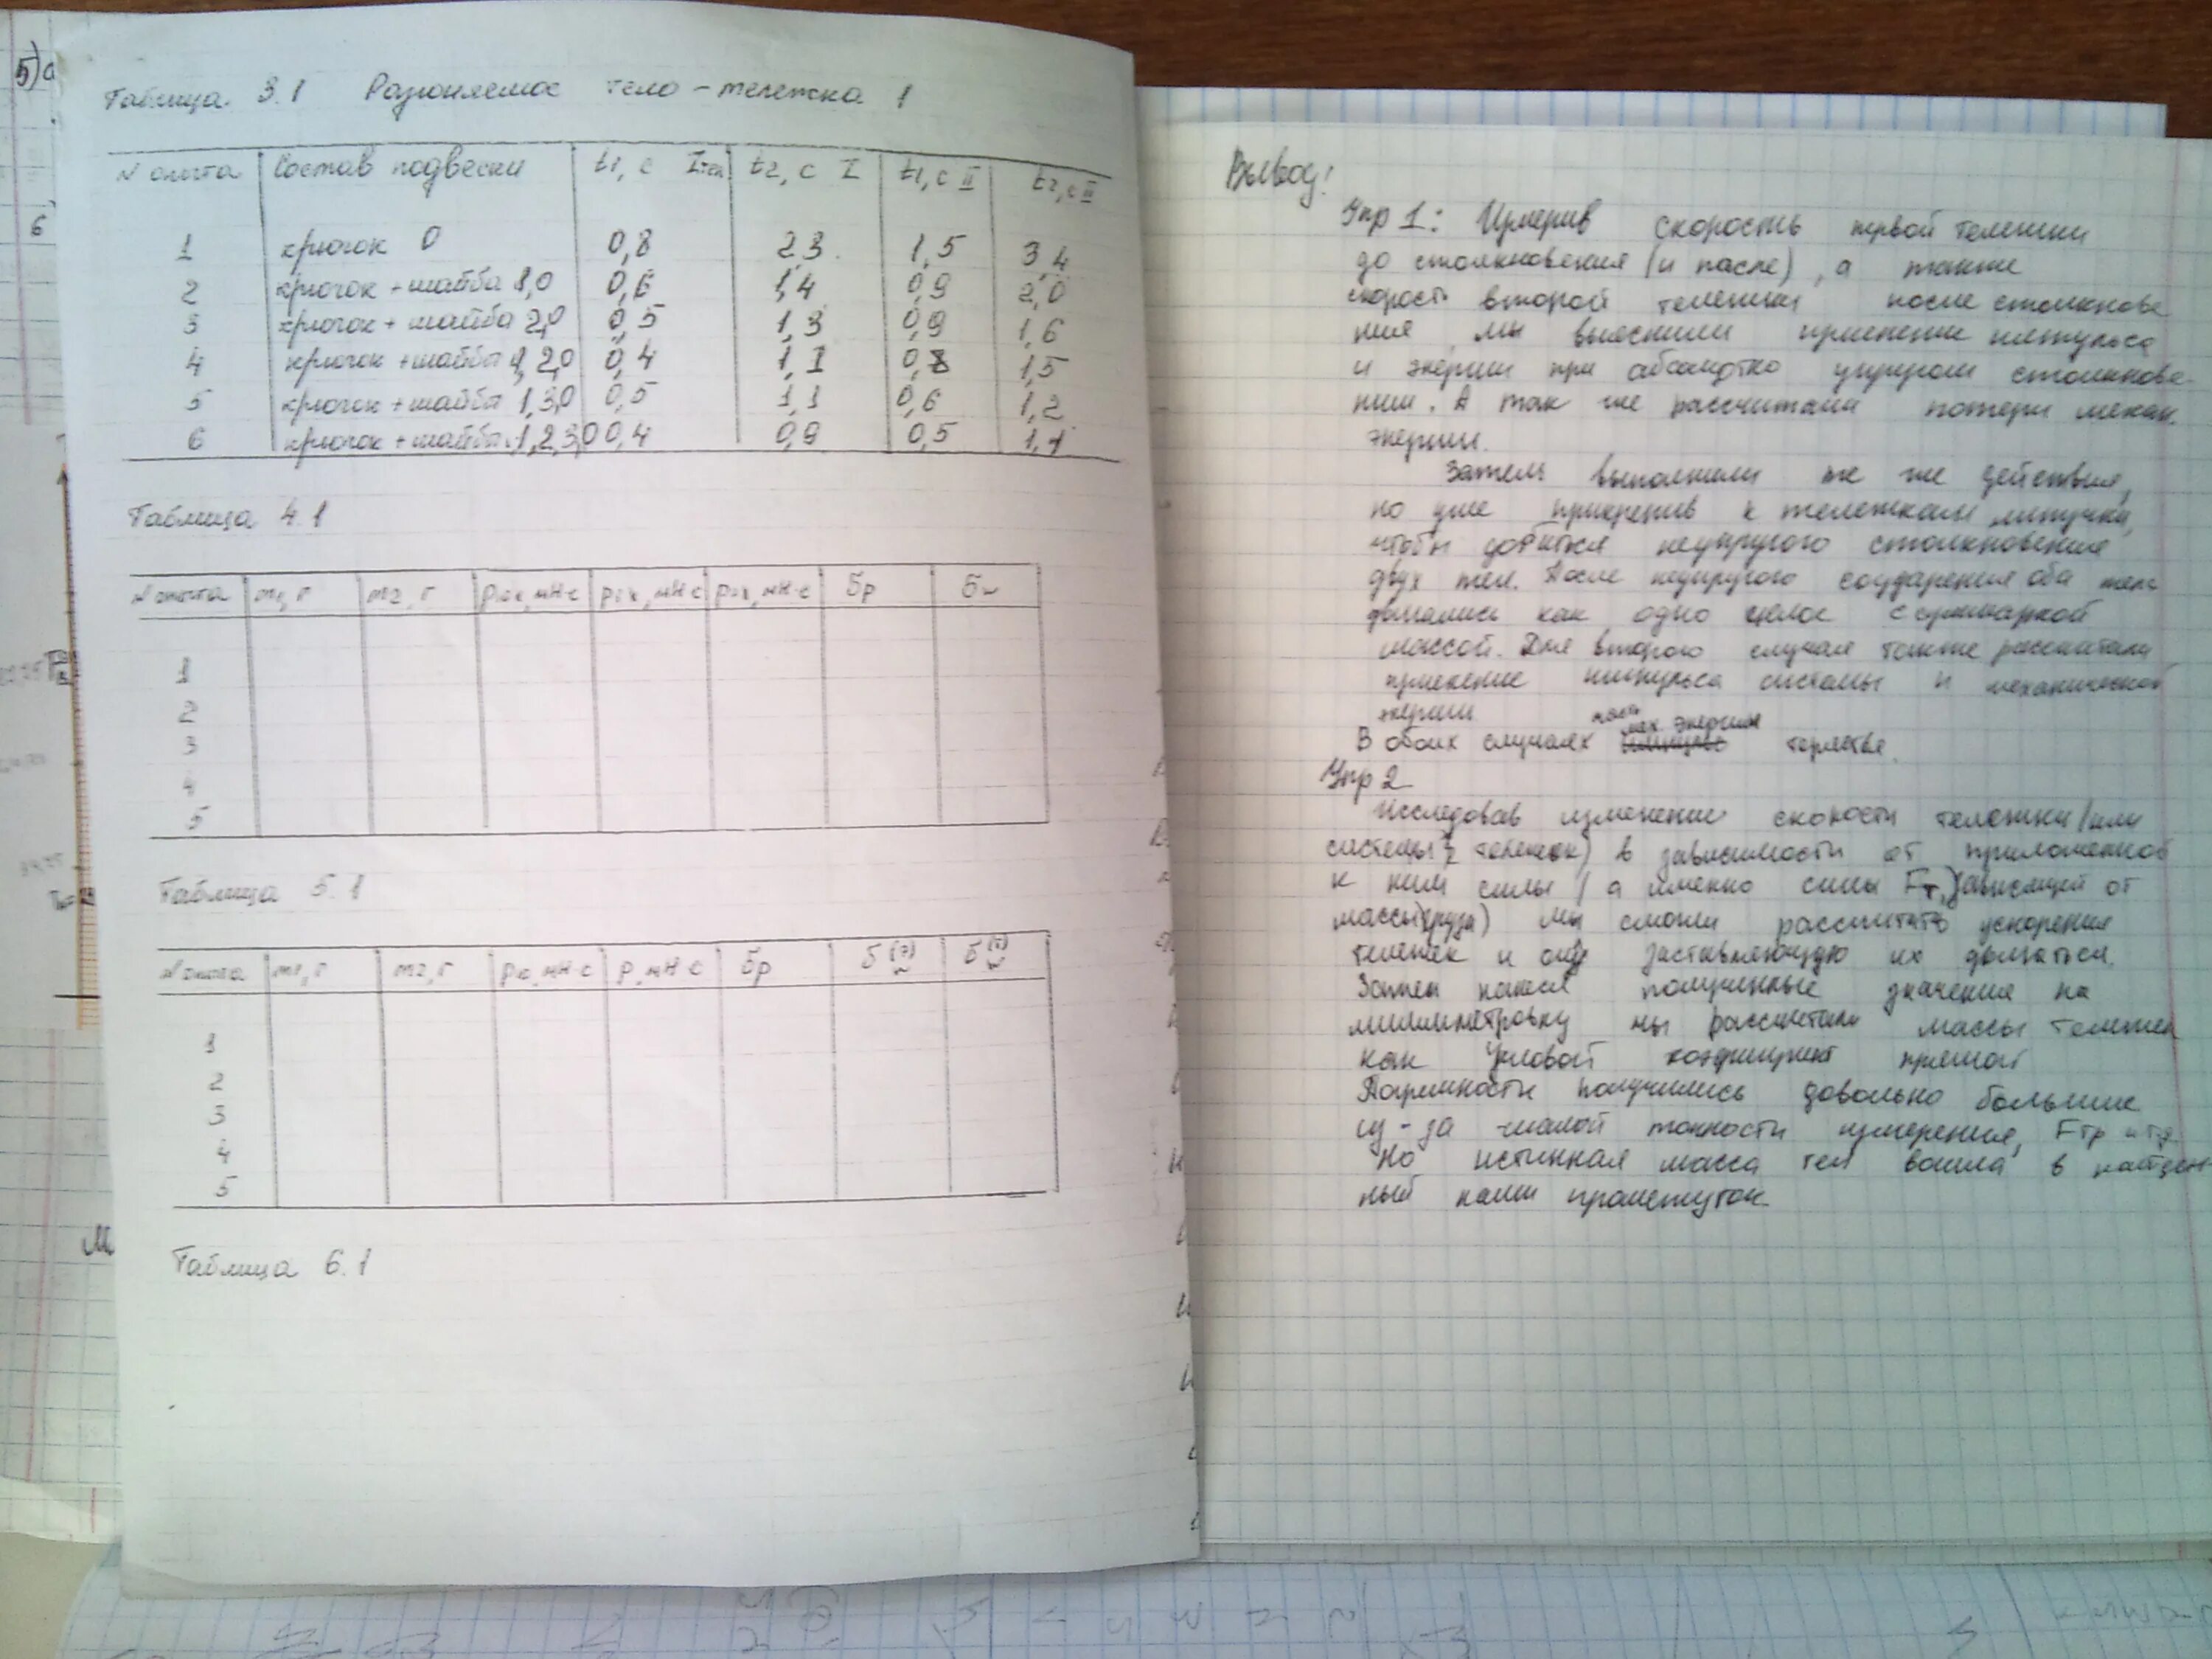 5)
6
Таблица 3.1 Разгоняемое тело – тележка 1
N опыта Состав подвески t1, c I t2, c I t1, c II t2, c II
1 крючок 0 0,8 2,3 1,5 3,4
2 крючок + шайба 1,0 0,6 1,4 0,9 2,0
3 крючок + шайба 2,0 0,5 1,3 0,9 1,6
4 крючок + шайба 1,2,0 0,4 1,1 1,5
5 крючок + шайба 1,3,0 0,5 1,1 0,6 1,2
6 крючок + шайба 1,2,3,0 0,4 0,9 0,5 1,1
Таблица 4.1
N опыта m1, г m2, г p1x, мН·с p2x, мН·с δp δw
1
2
3
4
5
Таблица 5.1
N опыта m1, г m2, г p, мН·с δp
1
2
3
4
5
Таблица 6.1
Вывод:
Упр 1: Измерив скорость первой тележки
до столкновения (и после), а также
скорость второй тележки после столкнове
ния, мы выяснили импульса
и энергии при абсолютно упругом столкнове-
нии. А так же рассчитали потери механ.
энергии.
Затем выполнили те же действия,
но уже прикрепив к тележкам липучки,
чтобы добиться неупругого столкновения
двух тел. После неупругого соударения оба тела
двигались как одно целое с суммарной
массой. Для второго случая также рассчитали
импульса системы и механической
энергии
В обоих случаях мех энергия теряется.
Упр 2
Исследовав изменение скорости тележки (или
системы 2 тележек) в зависимости от приложенной
к ним силы (а именно силы Fт, зависящей от
массы груза) мы смогли рассчитать ускорения
тележек и силу заставляющую их двигаться.
Затем нанеся полученные значения на
миллиметровку мы рассчитали массы тележек
как угловой коэффициент прямой
Погрешности получились довольно большие
из-за малой точности измерения, Fтр и тд
Но истинная масса тел вошла в найден-
ный нами промежуток